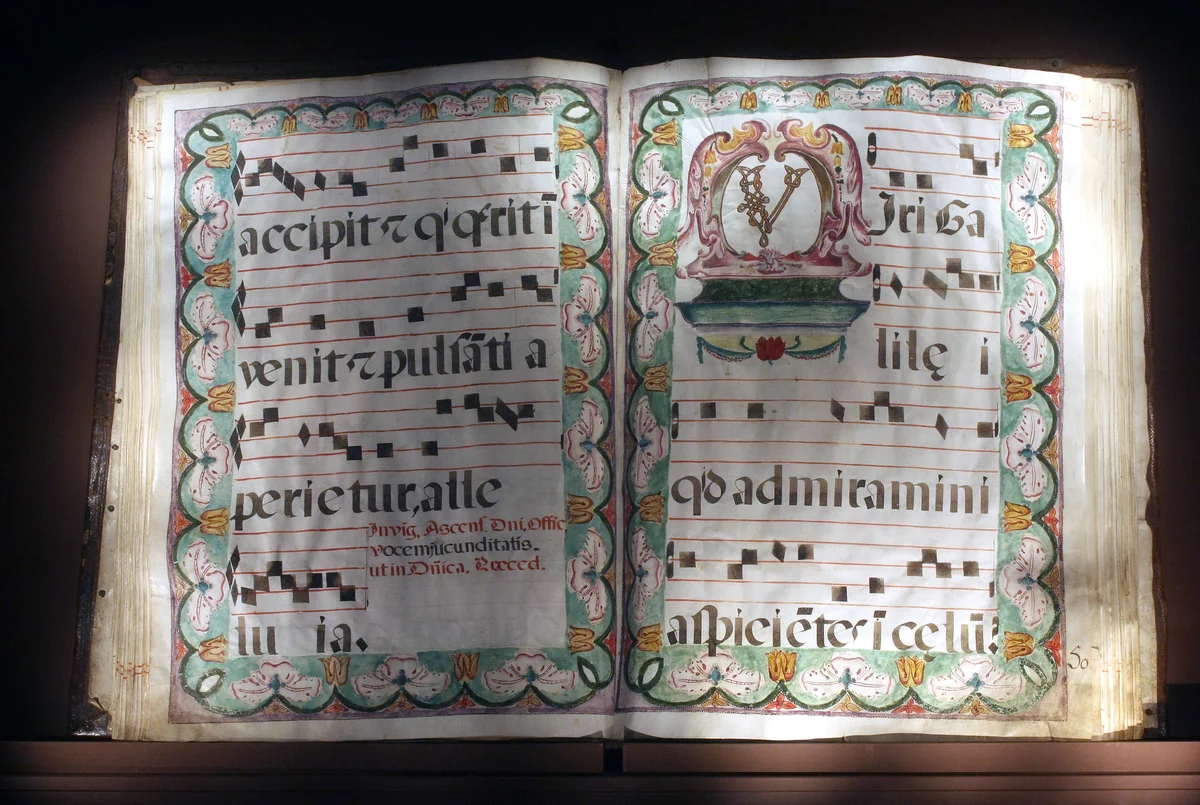 accipit ⁊ q̇ q̃riti
venit ⁊ pulsãti a
perietur, alle
Invig. Ascens. Dni. Offic
vocem jucunditatis.
ut in Dñica. Præced.
lu ia.
50
V Iri Ga
lilę i
qd admiramini
aſpiciẽtes i cęlũ?
50